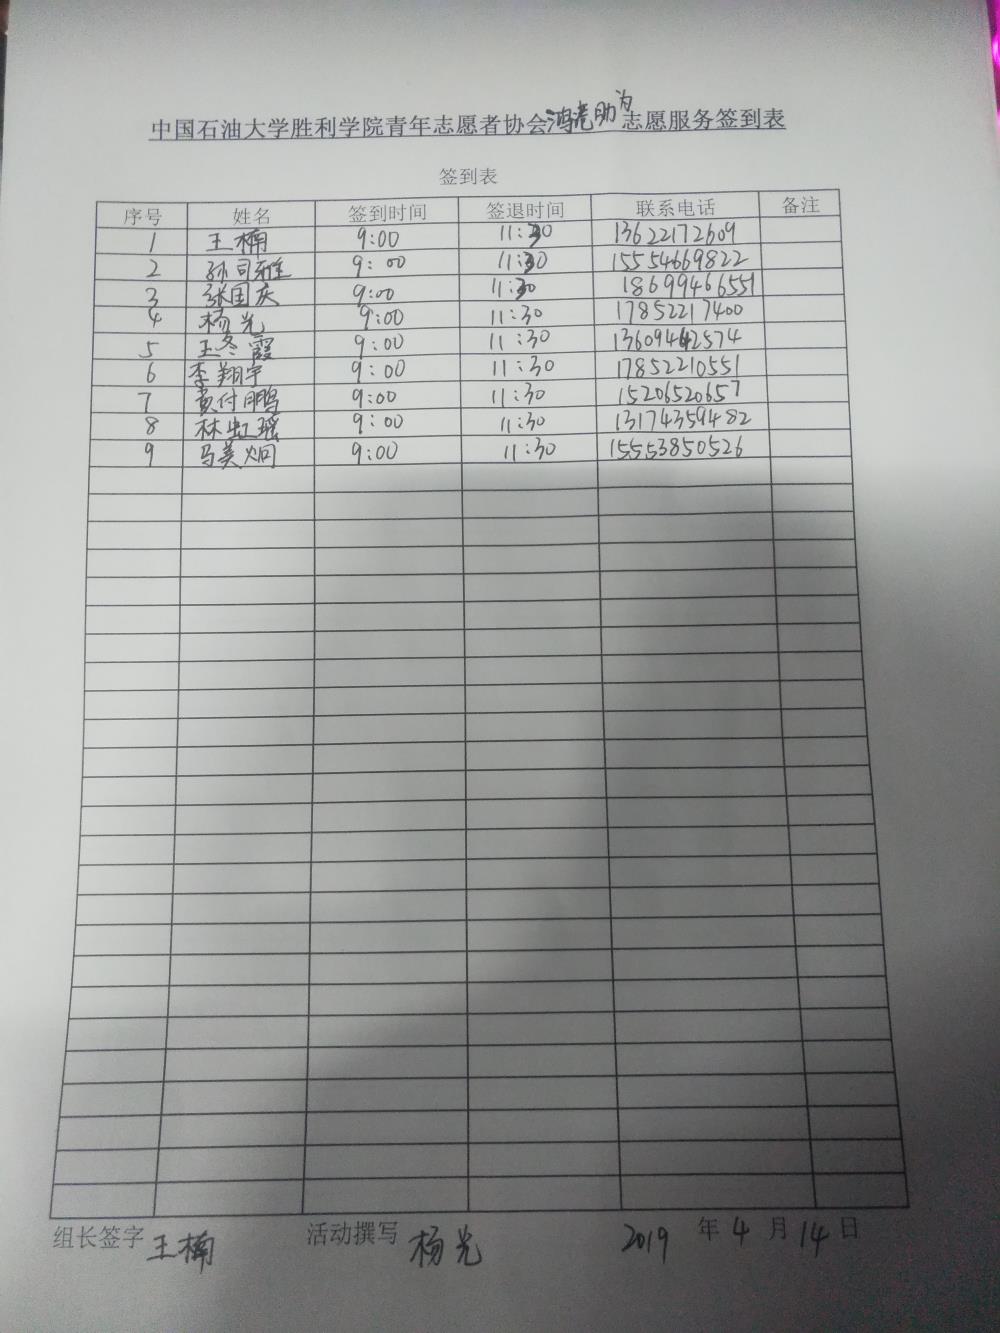 中国石油大学胜利学院青年志愿者协会鸿老助为志愿服务签到表
签到表
序号 姓名 签到时间 签退时间 联系电话 备注
1 王楠 9:00 11:30 13622172609
2 孙司雅 9:00 11:30 15554669822
3 张国庆 9:00 11:30 18699466551
4 杨光 9:00 11:30 17852217400
5 王冬霞 9:00 11:30 13609442574
6 李翔宇 9:00 11:30 17852210551
7 贾付鹏 9:00 11:30 15206520657
8 林虹瑶 9:00 11:30 13174359482
9 马美炯 9:00 11:30 15553850526
组长签字 王楠 活动撰写 杨光 2019 年 4 月 14 日